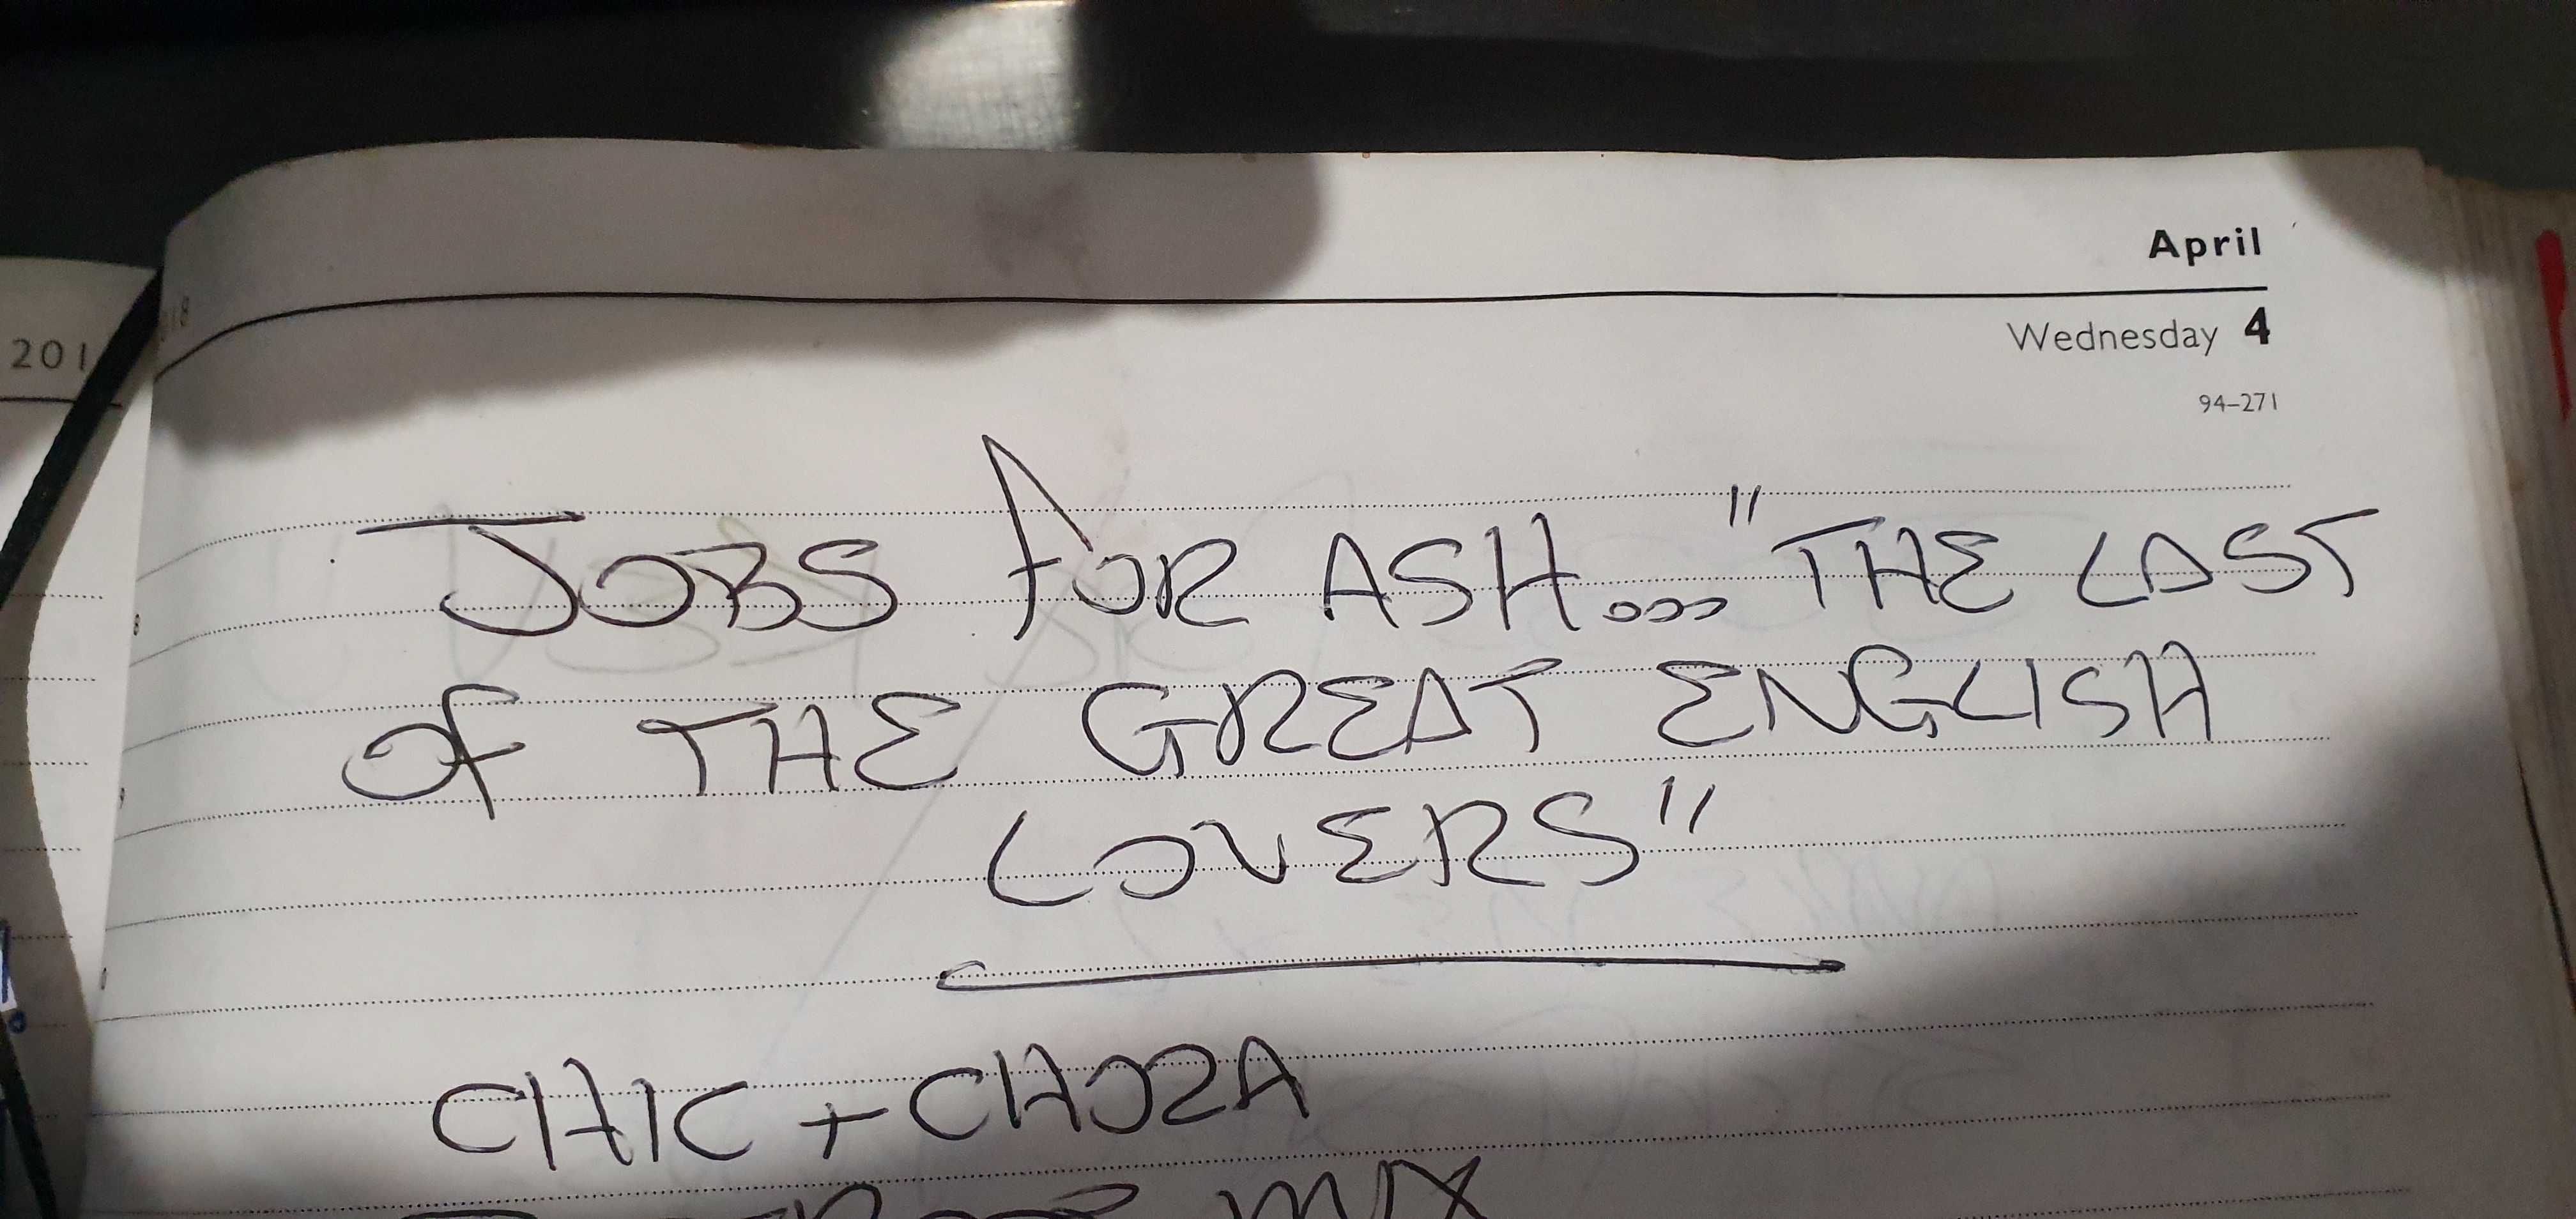 April
201
Wednesday 4
94–271
JOBS FOR ASH... "THE LAST
OF THE GREAT ENGLISH
LOVERS"
CHIC + CHOZA
MIX